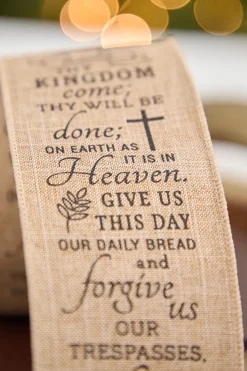 THY
KINGDOM
come;
THY WILL BE
done;
ON EARTH AS
IT IS IN
Heaven.
GIVE US
THIS DAY
OUR DAILY BREAD
and
forgive
us
OUR
TRESPASSES,